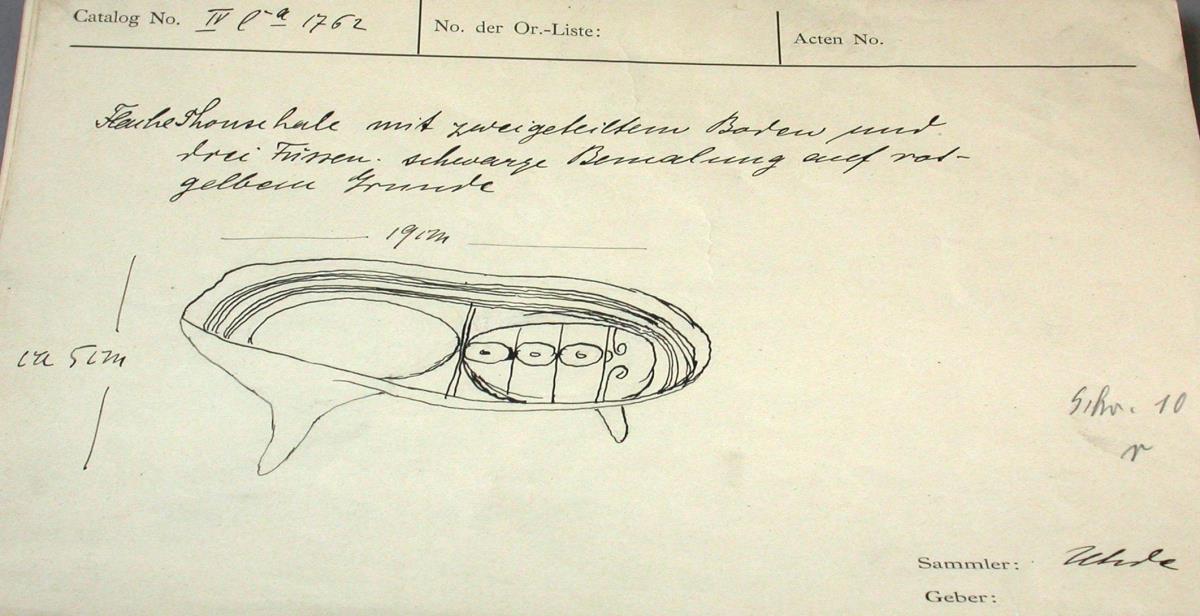 Catalog No. IV Ca 1762
No. der Or.-Liste:
Acten No.
Flache Thonschale mit zweigeteiltem Boden und
drei Füssen. schwarze Bemalung auf rot-
gelbem Grunde
19 cm
ca 5 cm
Schr. 10
r
Sammler: Uhde
Geber: